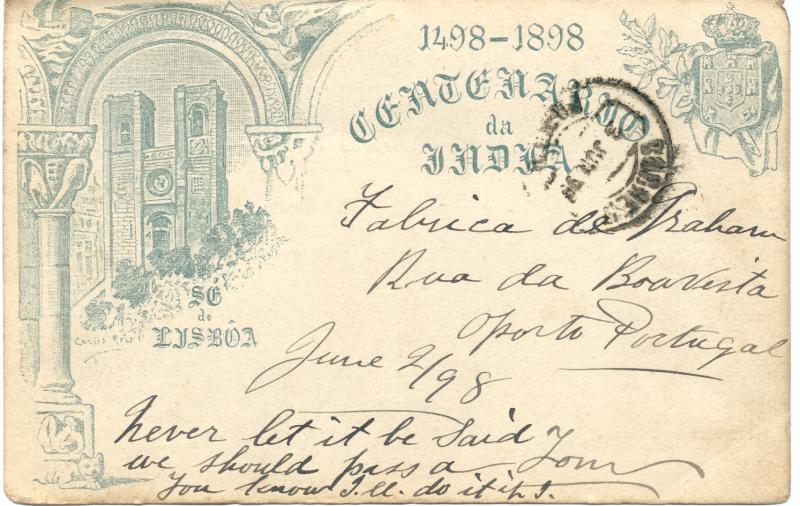 1498-1898
CENTENARIO
da
INDIA
SÉ
de
LISBÔA
Fabrica de Graham
Rua da Boavista
Oporto Portugal
June 2/98
Never let it be said
we should pass a Tom
You know I'll do it if I.